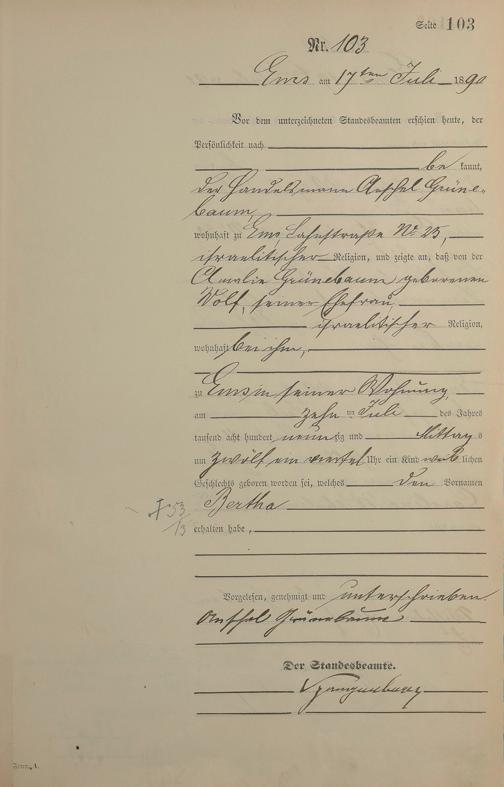 Seite 103
Nr. 103
Ems am 17ten Juli 1890
Vor dem unterzeichneten Standesbeamten erschien heute, der
Persönlichkeit nach
be kannt,
der Handelsmann Anschel Grüne-
baum,
wohnhaft zu Ems, Lahnstraße Nr. 25,
israelitischer Religion, und zeigte an, daß von der
Amalie Grünebaum geborenen
Wolf, seiner Ehefrau
israelitischer Religion,
wohnhaft bei ihm,
zu Ems in seiner Wohnung
am zehn ten Juli des Jahres
tausend acht hundert neunzig und Mittags
um zwölf ein viertel Uhr ein Kind weiblichen
Geschlechts geboren worden sei, welches den Vornamen
Bertha
53/13
erhalten habe,
Vorgelesen, genehmigt und unterschrieben
Anschel Grünebaum
Der Standesbeamte.
Spangenberg
Form. A.